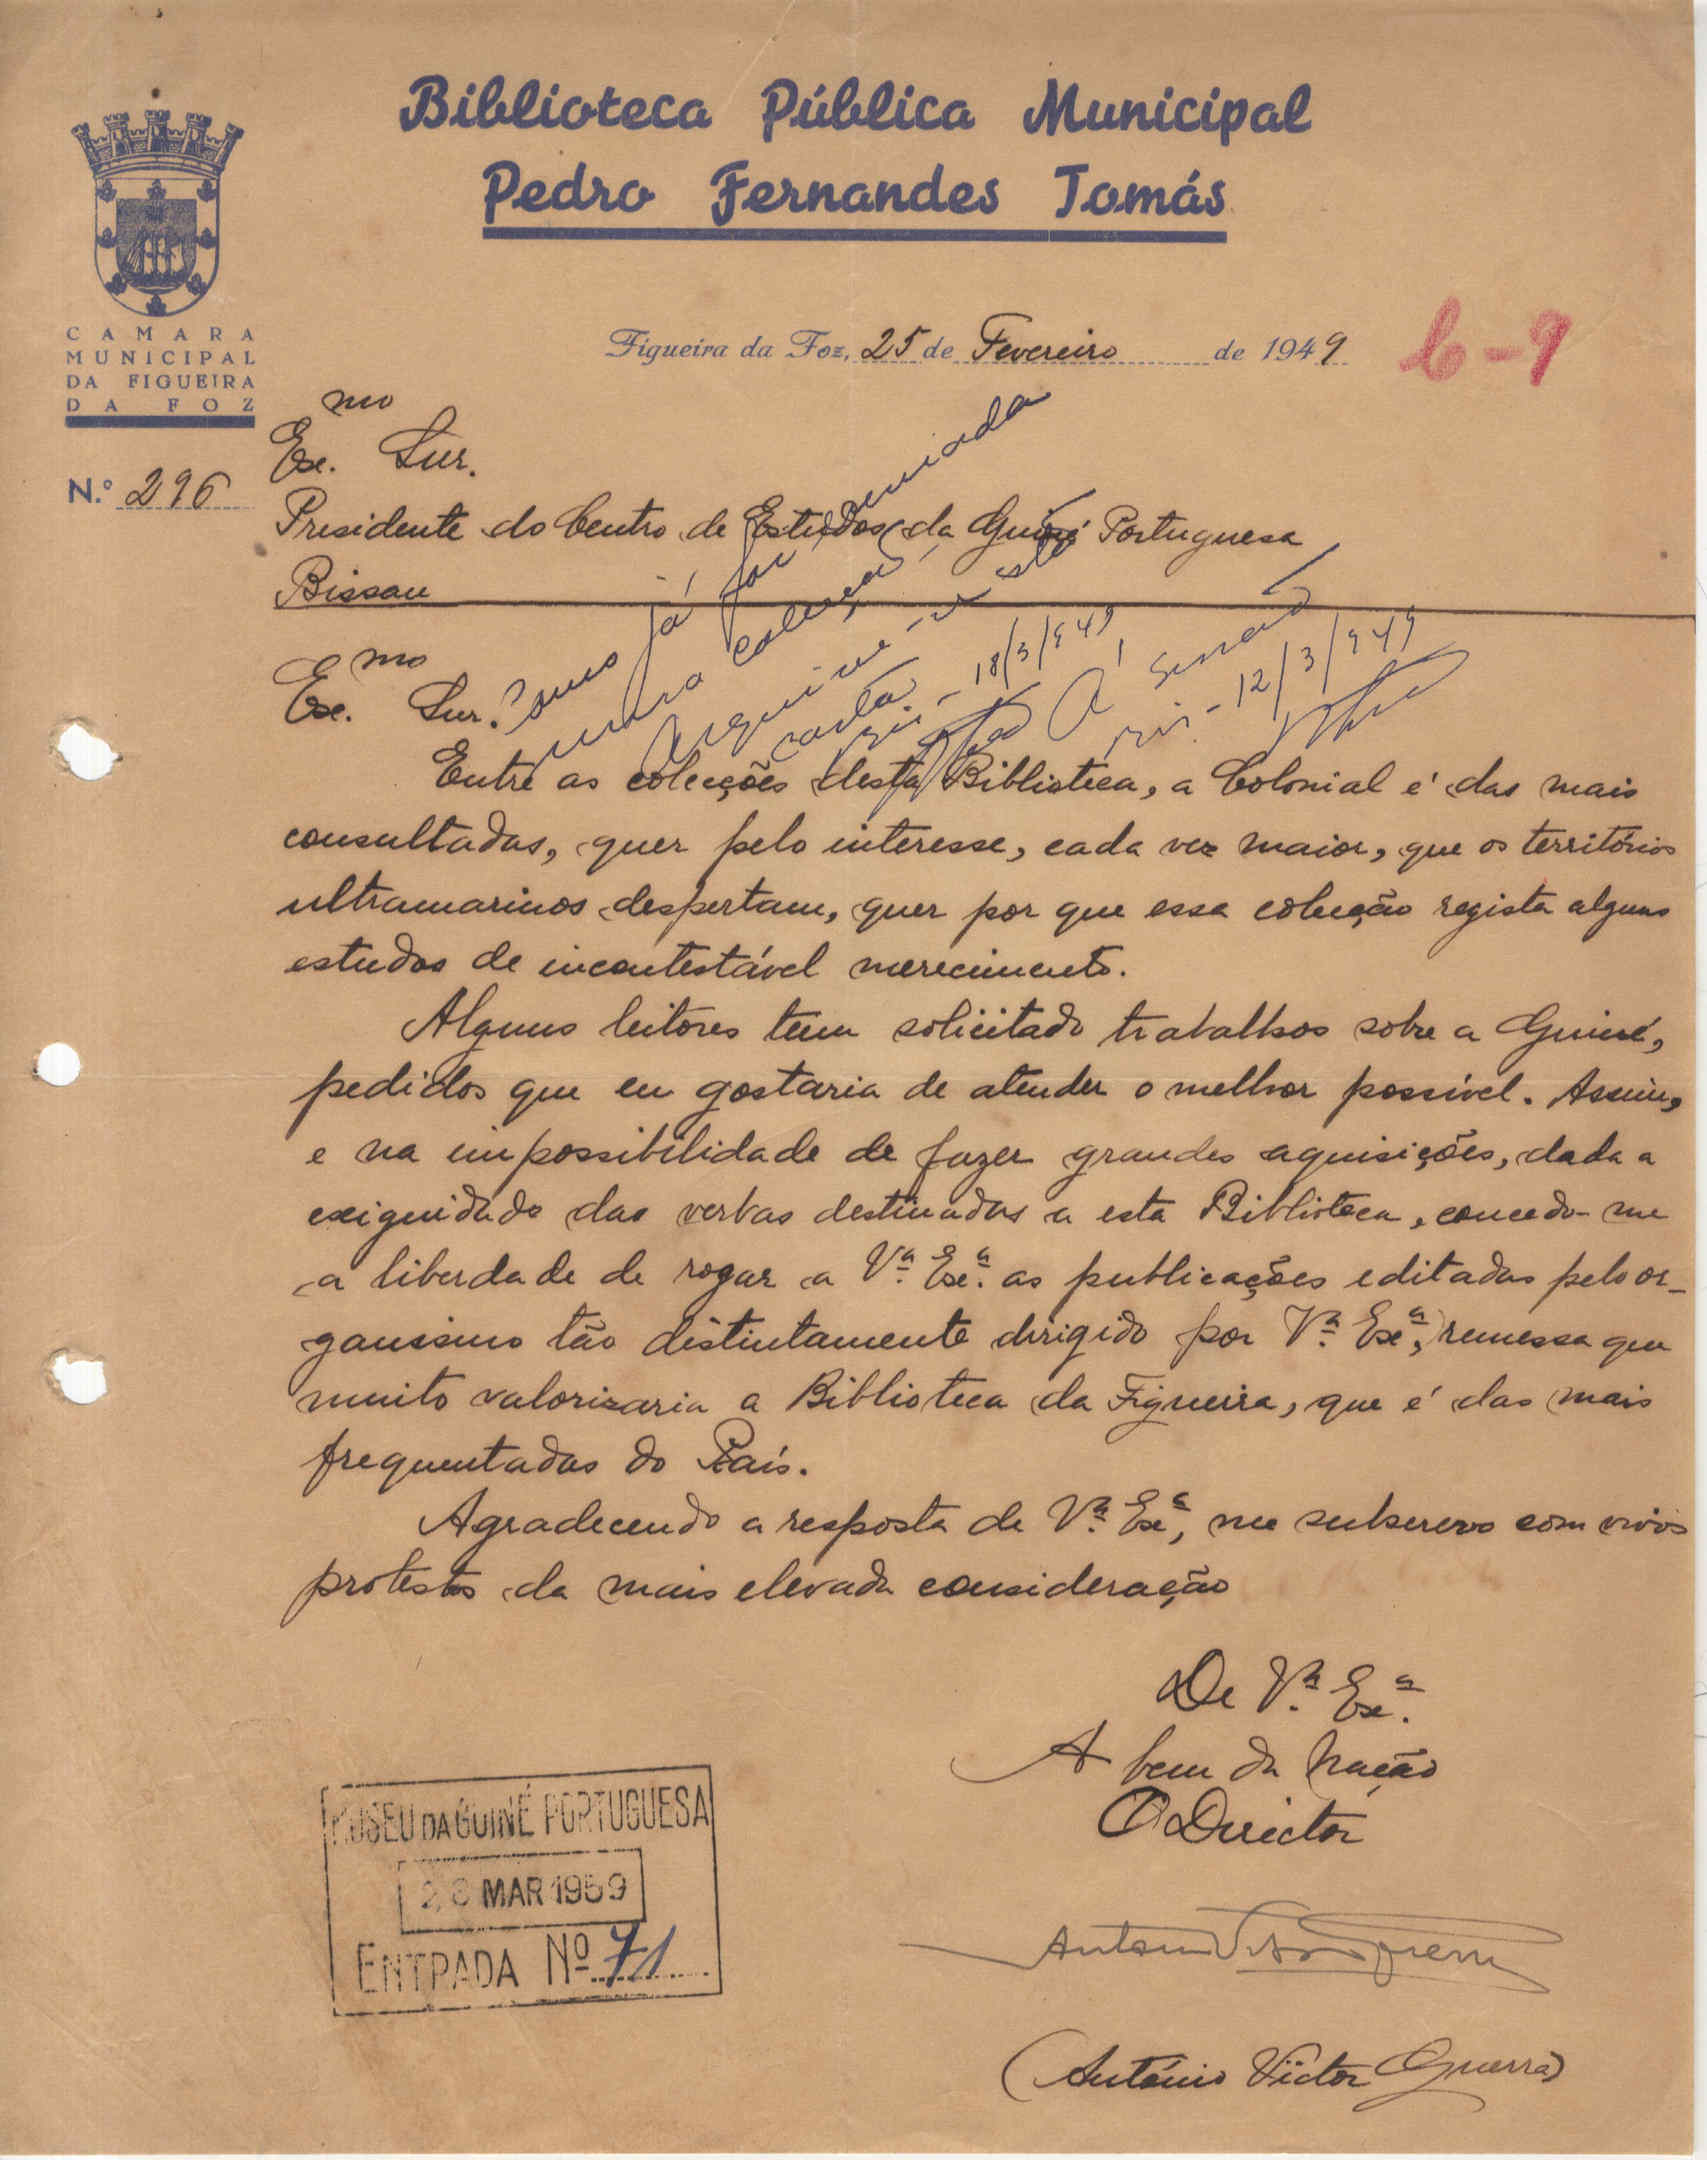 Biblioteca Pública Municipal
Pedro Fernandes Tomás
CAMARA
MUNICIPAL
DA FIGUEIRA
DA FOZ
Figueira da Foz, 25 de Fevereiro de 1949
C-9
N.º 296
Exmo. Snr.
Presidente do Centro de Estudos da Guiné Portuguesa
Bissau
Como já foi enviada
uma colecção,
arquive-se esta
carta.
18/3/949
À Secção
12/3/949
Exmo. Snr.
Entre as colecções desta Biblioteca, a Colonial é das mais
consultadas, quer pelo interesse, cada vez maior, que os territórios
ultramarinos despertam, quer por que essa colecção regista alguns
estudos de incontestável merecimento.
Alguns leitores tem solicitado trabalhos sobre a Guiné,
pedidos que eu gostaria de atender o melhor possível. Assim,
e na impossibilidade de fazer grandes aquisições, dada a
exiguidade das verbas destinadas a esta Biblioteca, concedo-me
a liberdade de rogar a Vª. Exª. as publicações editadas pelo or-
ganismo tão distintamente dirigido por Vª. Exª, remessa que
muito valorizaria a Biblioteca da Figueira, que é das mais
frequentadas do País.
Agradecendo a resposta de Vª. Exª, me subscrevo com vivos
protestos da mais elevada consideração
De Vª. Exª.
A bem da Nação
O Director
(António Víctor Guerra)
MUSEU DA GUINÉ PORTUGUESA
MAR 1959
ENTRADA Nº 71